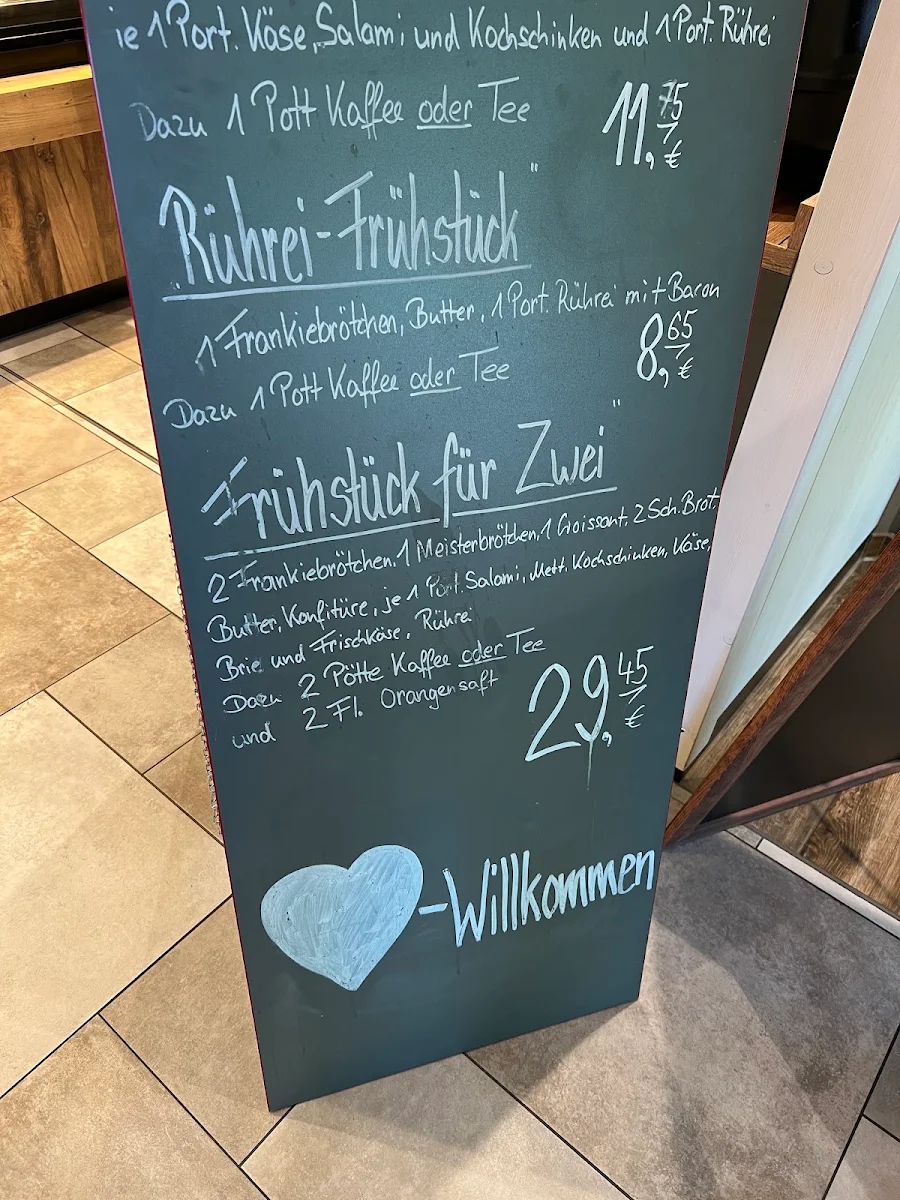 je 1 Port. Käse, Salami und Kochschinken und 1 Port. Rührei
Dazu 1 Pott Kaffee oder Tee 11,75 €
"Rührei-Frühstück"
1 Frankiebrötchen, Butter, 1 Port. Rührei mit Bacon
Dazu 1 Pott Kaffee oder Tee 8,65 €
Frühstück für Zwei"
2 Frankiebrötchen, 1 Meisterbrötchen, 1 Croissant, 2 Sch. Brot,
Butter, Konfitüre, je 1 Port. Salami, Mett, Kochschinken, Käse,
Brie und Frischkäse, Rührei
Dazu 2 Pötte Kaffee oder Tee
und 2 Fl. Orangensaft 29,45 €
-Willkommen